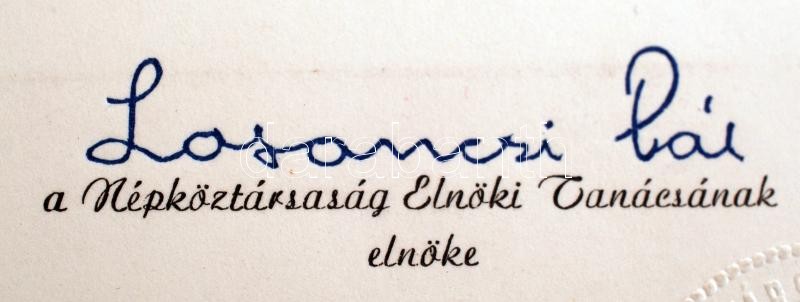 Losonczi Pál
a Népköztársaság Elnöki Tanácsának
elnöke